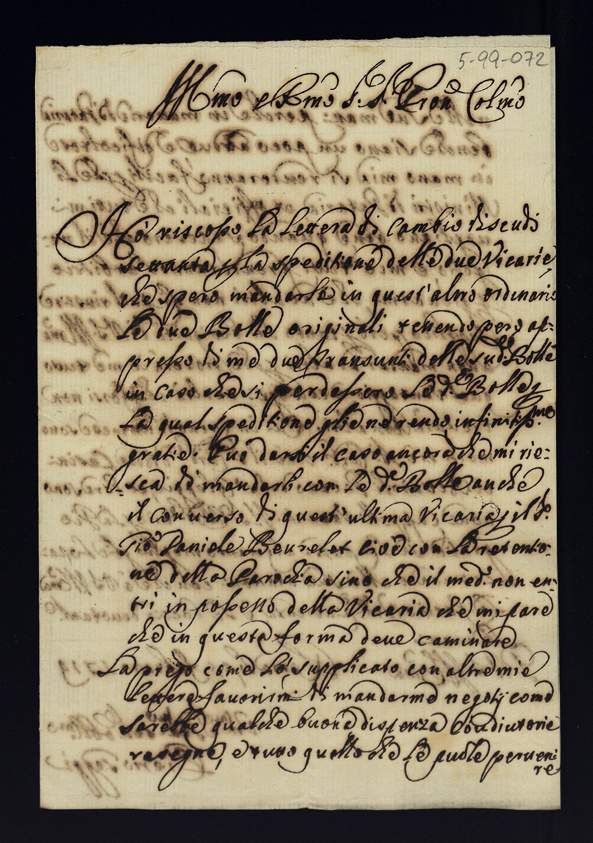 5-99-072
Ill:mo e R:mo S.r S.r Pron: Colmo
Hò riscosso la lettera di cambio di scudi
settanta p la speditione delle due Vicarie,
che spero mandarla in quest'altro ordinario
le due Bolle originali, tenendo però ap-
presso di me due Transunti delle sud.e Bolle
in caso che si perdessero le d.e Bolle,
la qual speditione gliene rendo infinitiss.me
gratie. Può darsi il caso ancora che mi rie-
sca di mandarli con le d.e Bolle anche
il converso di quest'ultima Vicaria, il S.r
Gio: Daniele Beurelet cioè con la retentio-
ne della Parochia sino che il med.o non en-
tri in possesso della Vicaria che mi pare
che in questa forma deve caminare
La prego come l'hò supplicato con altre mie
lettere favorirmi di mandarme negotij come
sarebbe qualche buona dispenza Coadiutorie
resegne, e tutto quello che le puole perveni
re